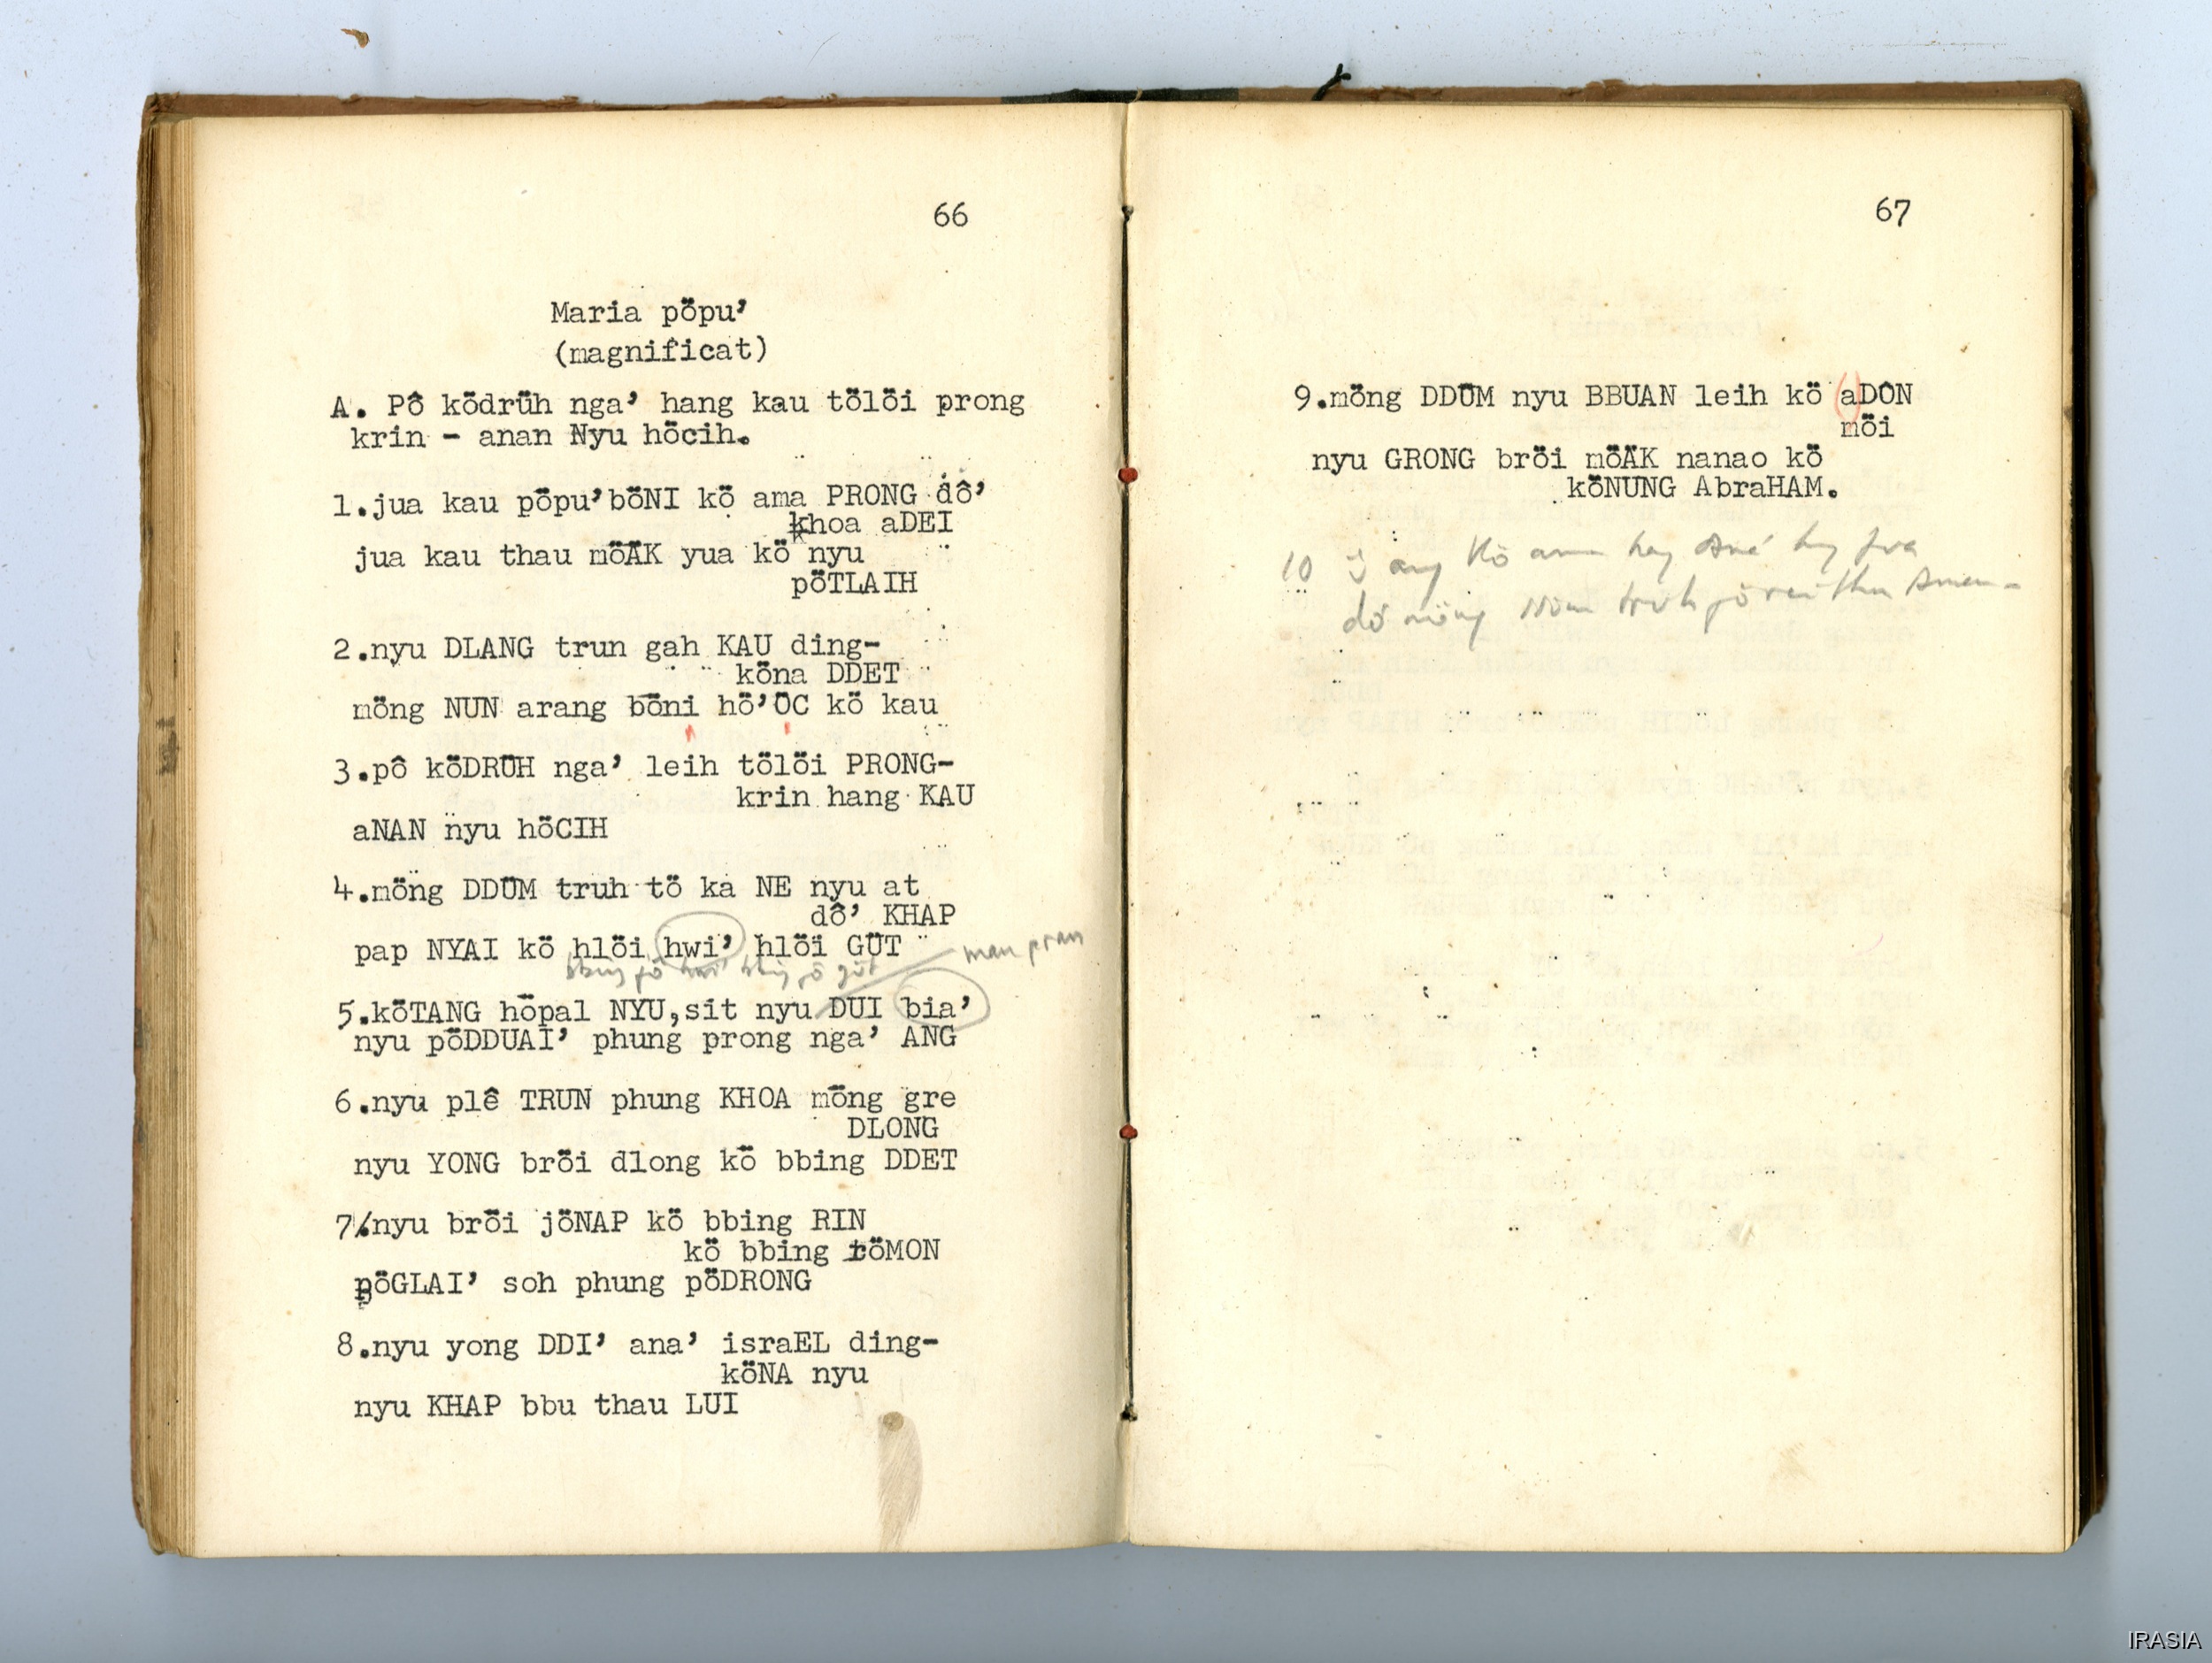 66
Maria pöpu’
(magnificat)
A. Pô ködrüh nga’ hang kau tölöi prong
krin - anan Nyu höcih.
1.jua kau pöpu’böNI kö ama PRONG dô’
khoa aDEI
jua kau thau möÄK yua kö nyu
pöTLAIH
2.nyu DLANG trun gah KAU ding-
köna DDET
möng NUN arang böni hö’ÜC kö kau
3.pô köDRÜH nga’ leih tölöi PRONG-
krin hang KAU
aNAN nyu höCIH
4.möng DDÜM truh tö ka NE nyu at
dô’ KHAP
pap NYAI kö hlöi hwi’ hlöi GÜT
man pran
5.köTANG höpal NYU,sit nyu DUI bia’
nyu pöDDUAI’ phung prong nga’ ANG
6.nyu plê TRUN phung KHOA möng gre
DLONG
nyu YONG bröi dlong kö bbing DDET
7.nyu bröi jöNAP kö bbing RIN
kö bbing röMON
pöGLAI’ soh phung pöDRONG
8.nyu yong DDI’ ana’ israEL ding-
köNA nyu
nyu KHAP bbu thau LUI
67
9.möng DDÜM nyu BBUAN leih kö aDÔN
möi
nyu GRONG bröi möÄK nanao kö
köNUNG AbraHAM.
10 ang kö ama
möng truh Amen
IRASIA